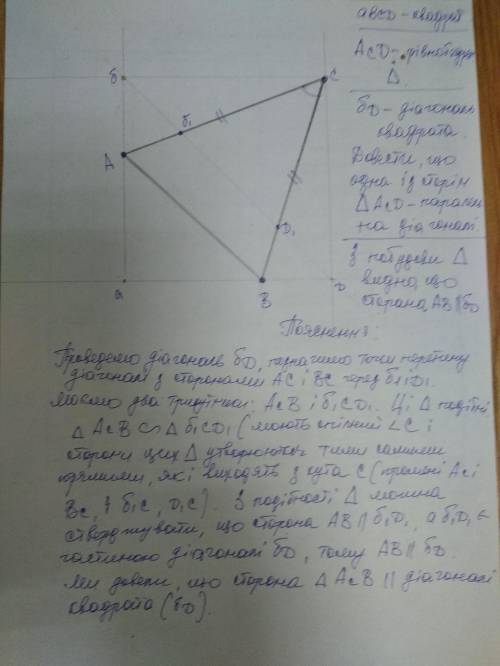 авсд - квадрат
АсD - рівнобедр
Δ.
бD - діагональ
квадрата.
Довести, що
одна із сторін
Δ АсD - паралел
на діагоналі.
З побудови Δ
видно, що
сторона АВ || бD
б
С
б₁
А
D₁
а
В
D
Пояснення:
Проведемо діагональ бD, позначимо точки перетину
діагоналі з сторонами АС і ВС через б₁ і D₁.
Маємо два трикутники: АсВ і б₁СD₁. Ці Δ подібні
Δ АсВ ∽ Δ б₁СD₁ (мають спільний ∠С і
сторони цих Δ утворюються тими самими
прямими, які виходять з кута С (промені Ас і
Вс, і б₁С, D₁С). З подібності Δ можна
стверджувати, що сторона АВ || б₁D₁, а б₁D₁ є
частиною діагоналі бD, тому АВ || бD.
Ми довели, що сторона Δ АсВ || діагоналі
квадрата (бD).